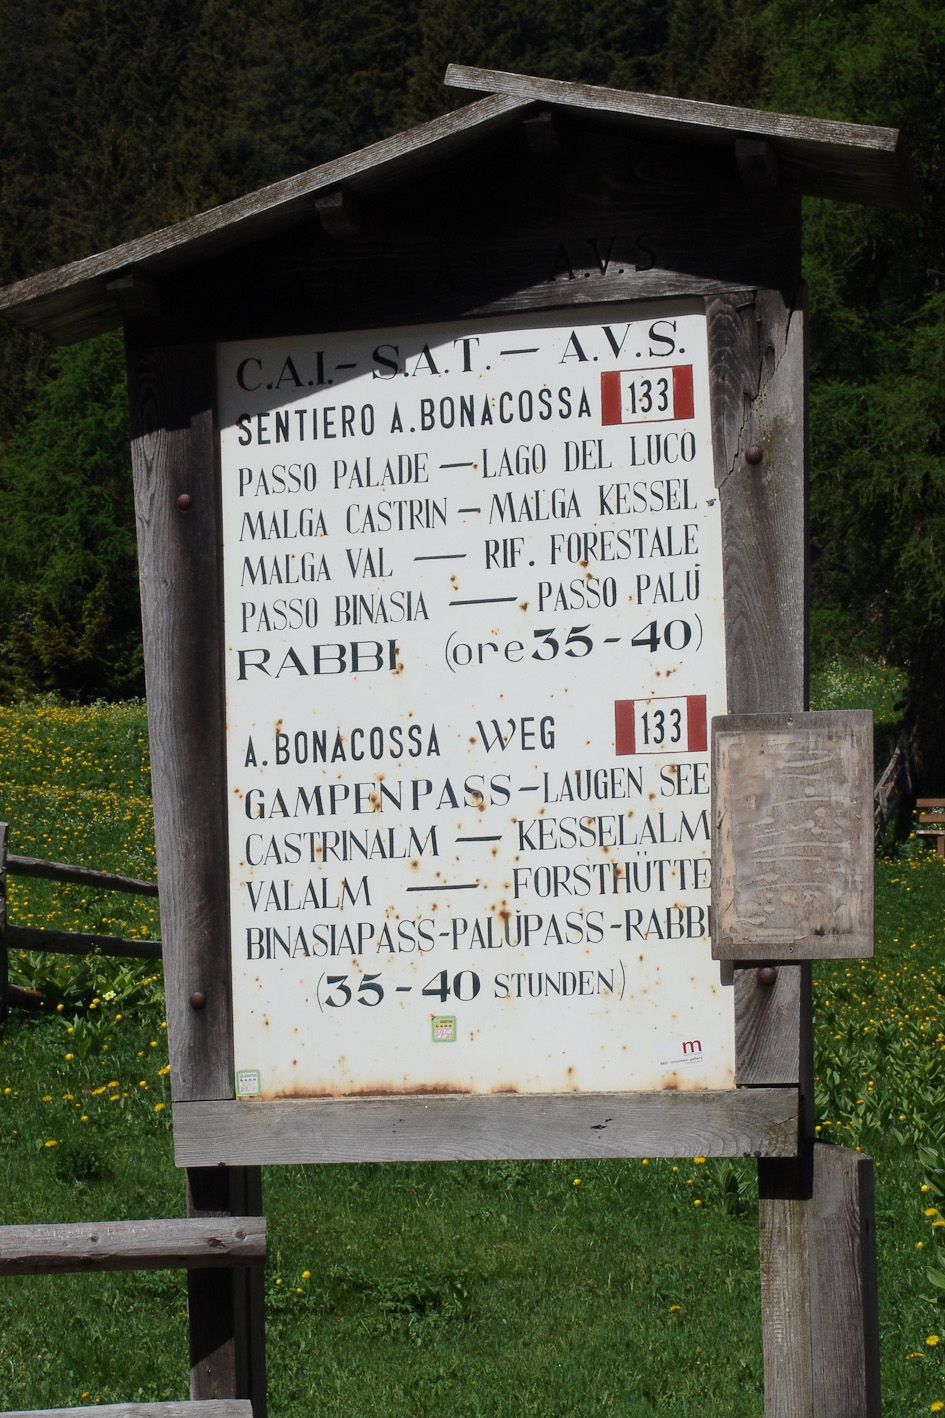 S.A.T. - A.V.S.
C.A.I. - S.A.T. — A.V.S.
SENTIERO A. BONACOSSA 133
PASSO PALADE — LAGO DEL LUCO
MALGA CASTRIN — MALGA KESSEL
MALGA VAL — RIF. FORESTALE
PASSO BINASIA — PASSO PALÜ
RABBI (ore 35 - 40)
A. BONACOSSA WEG 133
GAMPENPASS - LAUGEN SEE
CASTRINALM — KESSELALM
VALALM — FORSTHÜTTE
BINASIAPASS - PALÜPASS - RABBI
(35 - 40 STUNDEN)
m